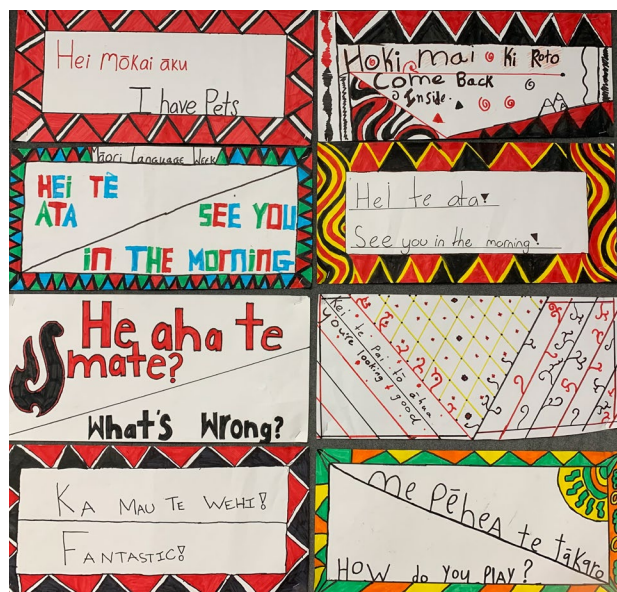 Hei mōkai āku
I have Pets
Hoki mai Ki Roto
Come Back
Inside.
Māori Language Week
HEi TĒ
ATA
SEE YOU
in THE MORNiNG
Hei te ata!
See you in the morning!
He aha te
mate?
What's Wrong?
Kei te pai tō āhua
you're looking good.
KA MAU TE WEHI!
FANTASTIC!
me PēheA te tākaro
HOW do you PLAY?